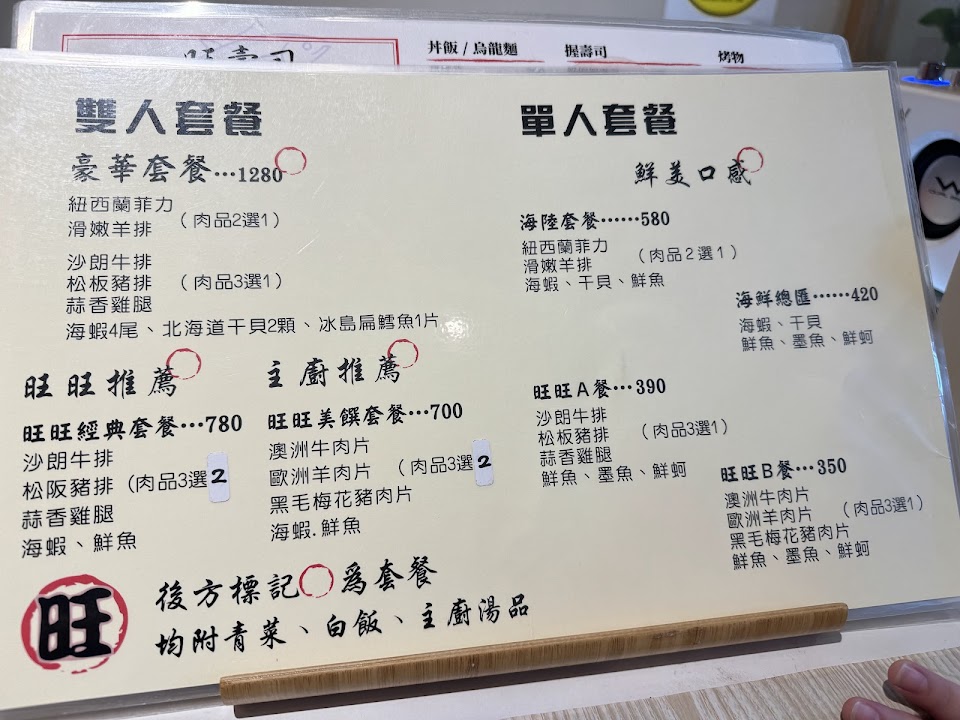 丼飯 / 烏龍麵
握壽司
烤物
雙人套餐
豪華套餐…1280
紐西蘭菲力
滑嫩羊排
(肉品2選1)
沙朗牛排
松板豬排 (肉品3選1)
蒜香雞腿
海蝦4尾、北海道干貝2顆、冰島扁鱈魚1片
旺旺推薦
旺旺經典套餐…780
沙朗牛排
松阪豬排 (肉品3選2
蒜香雞腿
海蝦、鮮魚
主廚推薦
旺旺美饌套餐…700
澳洲牛肉片
歐洲羊肉片 (肉品3選2
黑毛梅花豬肉片
海蝦.鮮魚
單人套餐
鮮美口感
海陸套餐……580
紐西蘭菲力
滑嫩羊排
(肉品2選1)
海蝦、干貝、鮮魚
海鮮總匯……420
海蝦、干貝
鮮魚、墨魚、鮮蚵
旺旺A餐…390
沙朗牛排
松板豬排 (肉品3選1)
蒜香雞腿
鮮魚、墨魚、鮮蚵
旺旺B餐…350
澳洲牛肉片
歐洲羊肉片 (肉品3選1)
黑毛梅花豬肉片
鮮魚、墨魚、鮮蚵
旺
後方標記○為套餐
均附青菜、白飯、主廚湯品